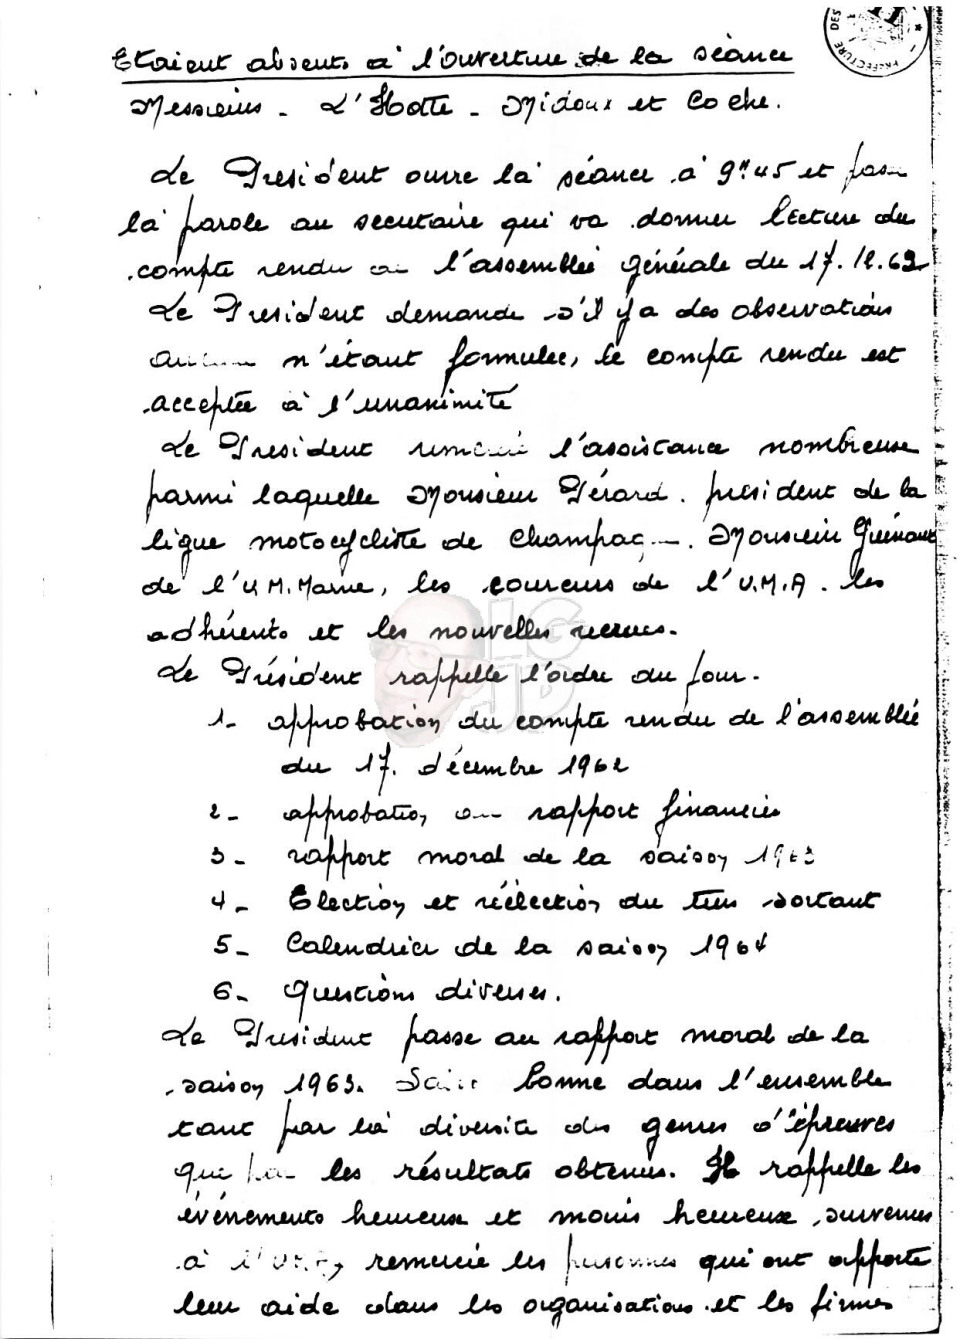 PREFECTURE DES
Etaient absents à l'ouverture de la séance
Messieurs - L'Hotte - Midoux et Coche.
Le President ouvre la séance à 9h45 et passe
la parole au secretaire qui va donner lecture du
compte rendu de l'assemblée générale du 17.12.62
Le President demande s'il y a des observations
aucune n'étant formulée, le compte rendu est
acceptée à l'unanimité
Le President remercie l'assistance nombreuse
parmi laquelle Monsieur Gérard. president de la
ligue motocycliste de Champagne. Monsieur
de l'U.M. Marne, les coureurs de l'U.M.A. les
adhérents et les nouvelles recrues.
Le Président rappelle l'ordre du jour.
1- approbation du compte rendu de l'assemblée
du 17. décembre 1962
2- approbation du rapport financier
3- rapport moral de la saison 1963
4- Election et réélection du tiers sortant
5- Calendrier de la saison 1964
6- Questions diverses.
Le President passe au rapport moral de la
saison 1963. bonne dans l'ensemble
tant par la diversite des genres d'épreuves
que par les résultats obtenus. Il rappelle les
événements heureux et moins heureux survenus
à remercie les personnes qui ont apporte
leur aide dans les organisations et les firmes
LG
JP